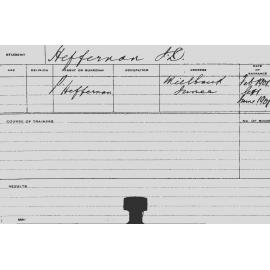 STUDENT Heffernan J.D.
AGE RELIGION PARENT OR GUARDIAN OCCUPATION ADDRESS DATE OF ENTRANCE
P Heffernan Millbank Feb 1904
Junee Sept
June 1904
COURSE OF TRAINING NO. OF
RESULTS